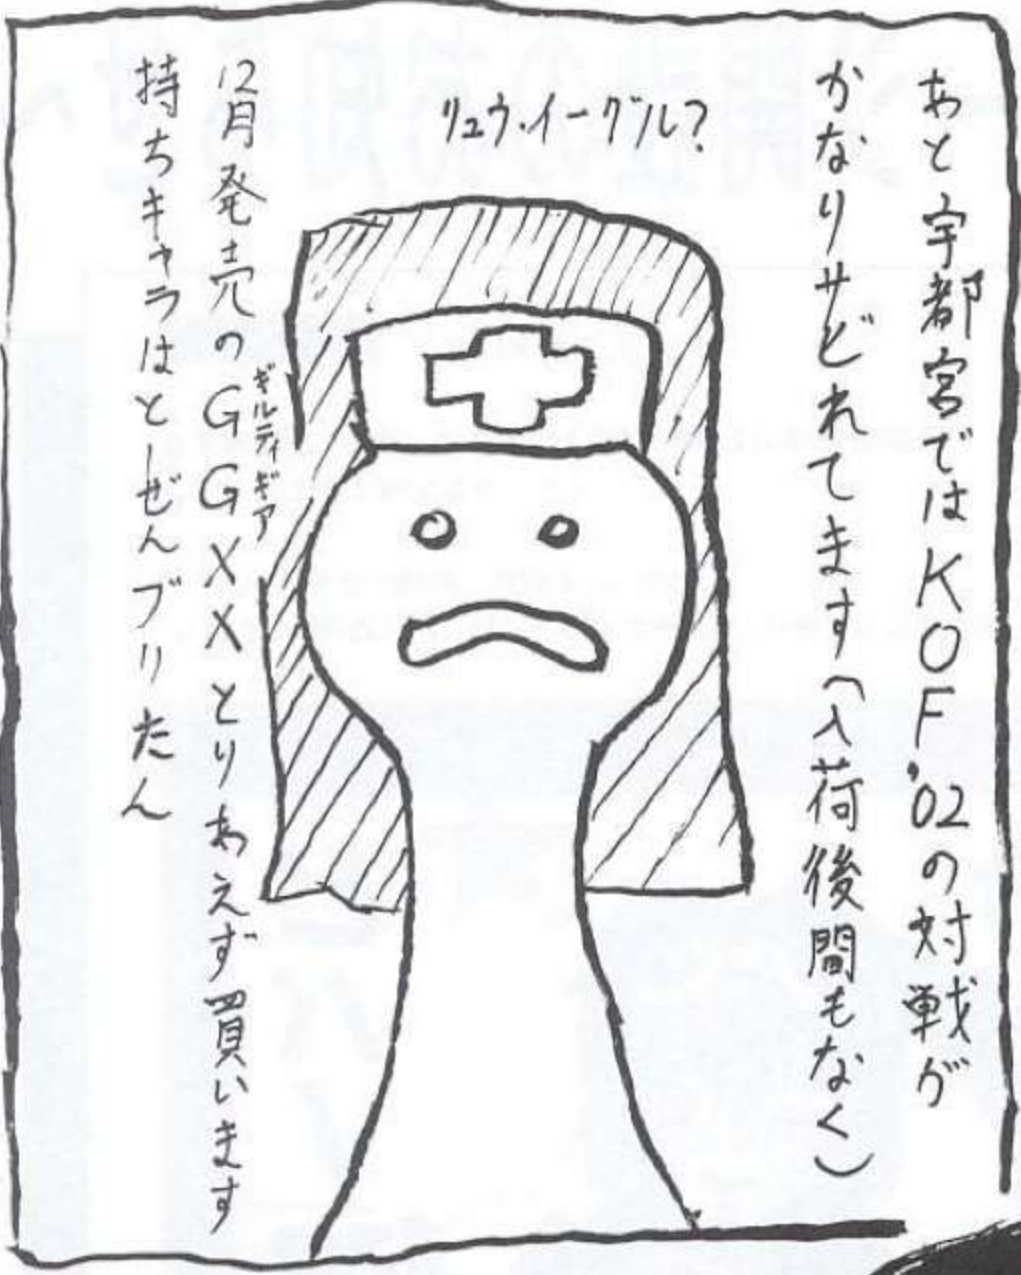 あと宇都宮ではKOF'02の対戦が
かなりサどれてます(入荷後間もなく)
リュウ・イーグル?
12月発売のGGXXとりあえず買います
ギルティギア
持ちキャラはとーぜんブリたん